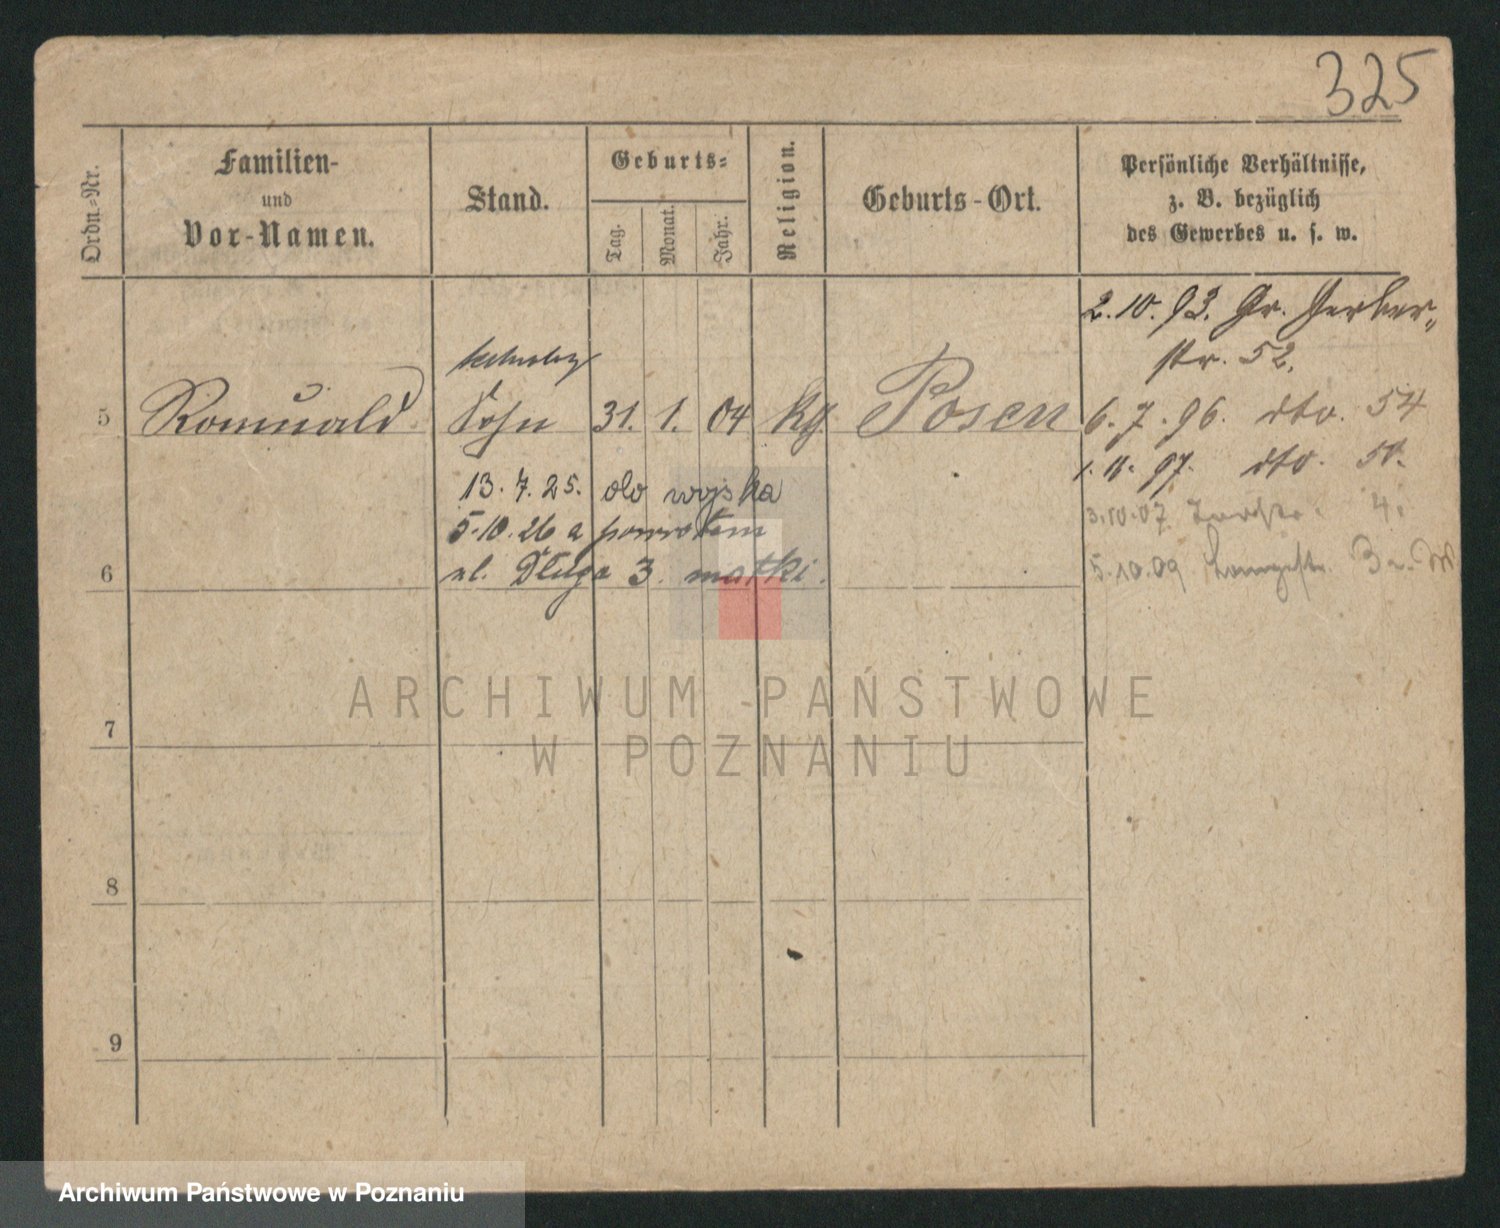 325
Ordn.-Nr.
Familien-
und
Vor-Namen.
Stand.
Geburts-
Tag.
Monat.
Jahr.
Religion.
Geburts-Ort.
Persönliche Verhältnisse,
z. B. bezüglich
des Gewerbes u. s. w.
2. 10. 93. Gr. Gerber-
str. 52.
5 Romuald Sohn 31. 1. 04 kg Posen
6. 7. 96. dto. 54
1. 11. 97. dto. 50.
13. 7. 25. do wojska
5.10.26 a powrotem
ul. Długa 3. matki.
3.10.07. 4.
5.10.09 Langestr. 3
6
7
8
9
ARCHIWUM PAŃSTWOWE
W POZNANIU
Archiwum Państwowe w Poznaniu